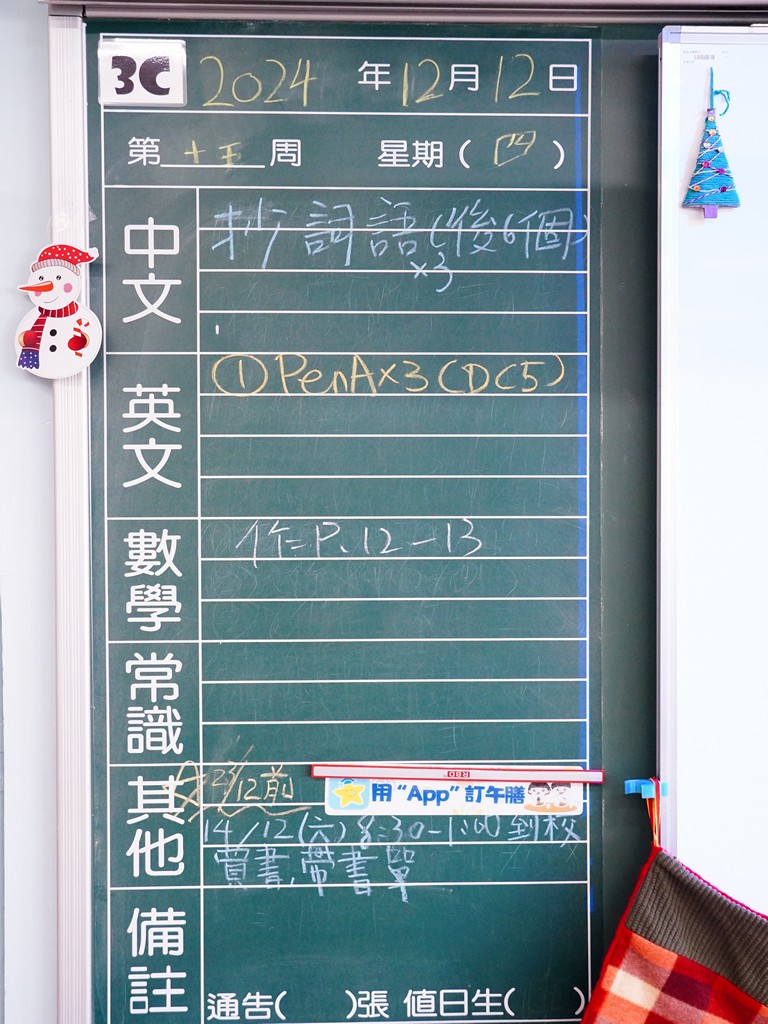 3C 2024 年 12 月 12 日
第 十五 周 星期 ( 四 )
中文
抄詞語(後6個)
×3
英文
①PenA×3(DC5)
數學
作=P.12-13
常識
其他
12前
用“App”訂午膳
14/12(六)8:30-1:00到校
買書,帶書單
備註
通告( )張 值日生( )